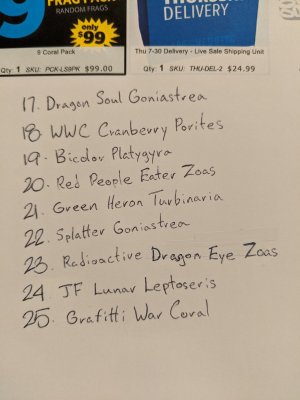 FRAG PACK
RANDOM FRAGS
only
$99
9
DELIVERY
6 Coral Pack
Thu 7-30 Delivery - Live Sale Shipping Unit
Qty: 1 SKU: PCK-LS9PK $99.00
Qty: 1 SKU: THU-DEL-2 $24.99
17. Dragon Soul Goniastrea
18. WWC Cranberry Porites
19. Bicolor Platygyra
20. Red People Eater Zoas
21. Green Heron Turbinaria
22. Splatter Goniastrea
23. Radioactive Dragon Eye Zoas
24 JF Lunar Leptoseris
25. Grafitti War Coral